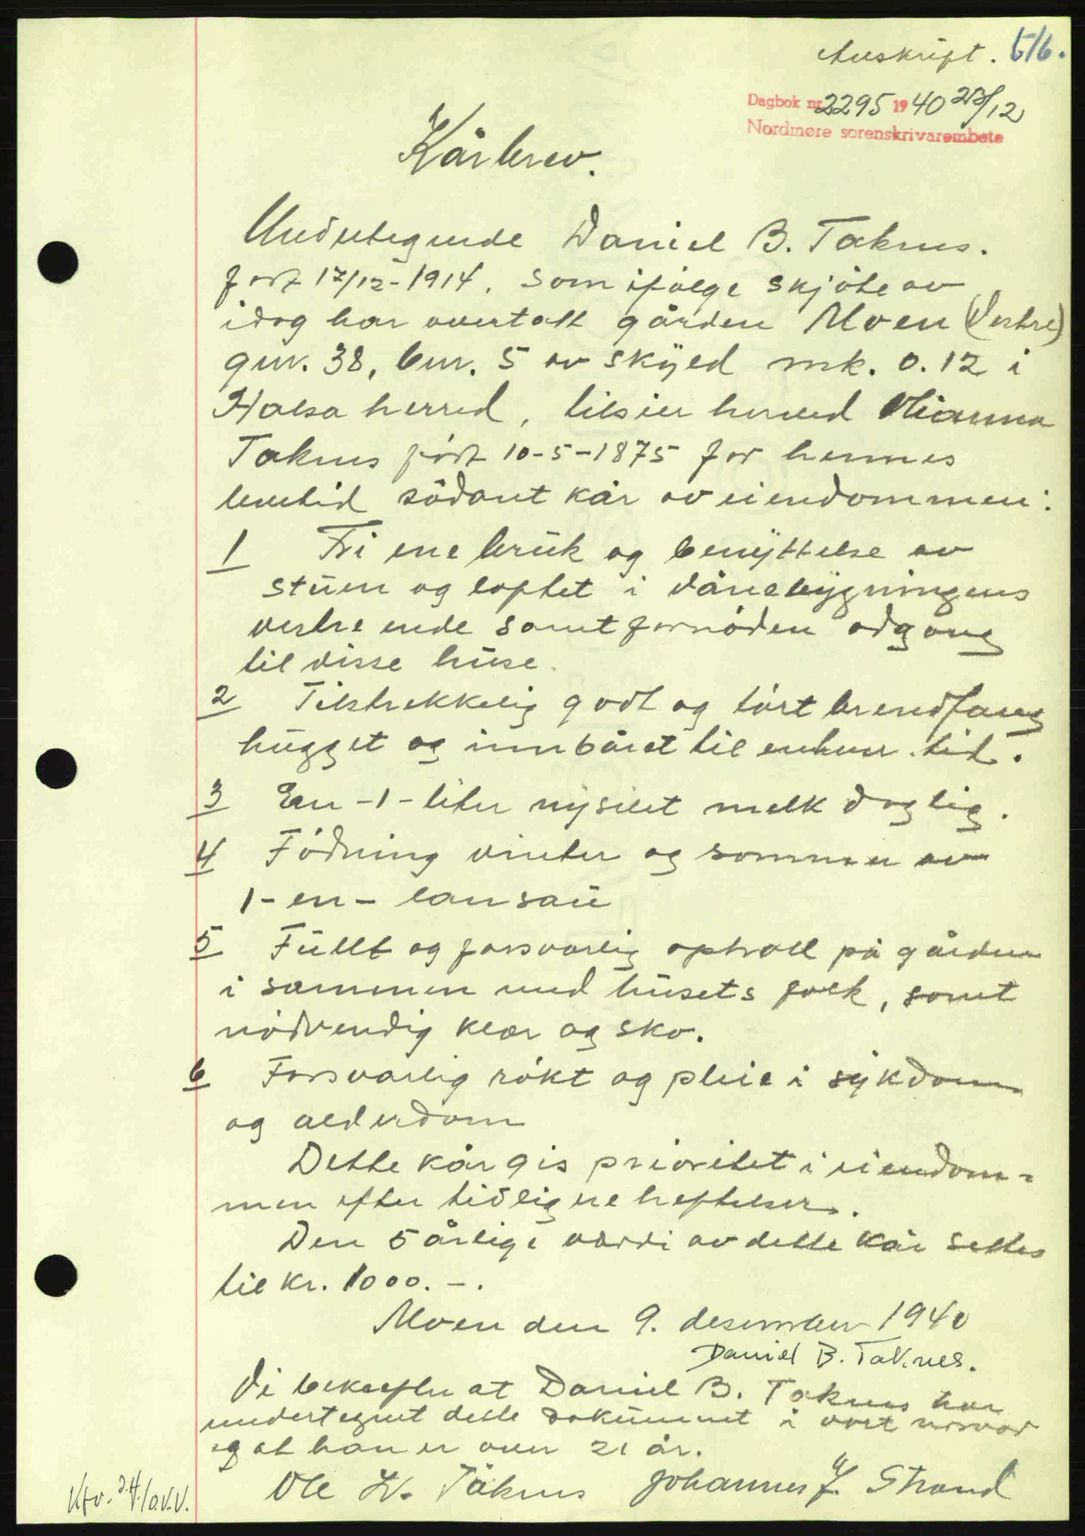 Avskrift. 516.
Dagbok nr. 2295 1940 23/12
Nordmøre sorenskrivarembete
Kårbrev.
Undertegnede Daniel B. Taknes.
født 17/12-1914. som ifølge skjøte av
idag har overtatt gården Moen (Vestre)
gnr. 38, bnr. 5 av skyld mk. 0.12 i
Halsa herred, tilsier herved
Taknes født 10-5-1875 for hennes
levetid sådant kår av eiendommen:
1 Fri ene bruk og benyttelse av
stuen og loftet i vånebygningens
vestre ende samt fornøden adgang
til disse huse.
2 Tilstrekkelig godt og tørt brendfang
hugget og innbåret til enhver tid.
3 En -1- liter nysilet melk daglig.
4 Fødning vinter og sommer av
1- en - lausau
5 Fullt og forsvarlig ophold på gården
i sammen med husets folk, samt
nødvendig klær og sko.
6 Forsvarlig røkt og pleie i sykdom
og alderdom
Dette kår gis prioritet i eiendom-
men efter tidligere heftelser.
Den 5 årlige værdi av dette kår settes
til kr. 1000.-.
Moen den 9. desember 1940
Daniel B. Taknes.
Vi bekrefter at Daniel B. Taknes har
undertegnet dette dokument i vort nærvær
og at han er over 21 år.
Ole Taknes Johannes J. Strand